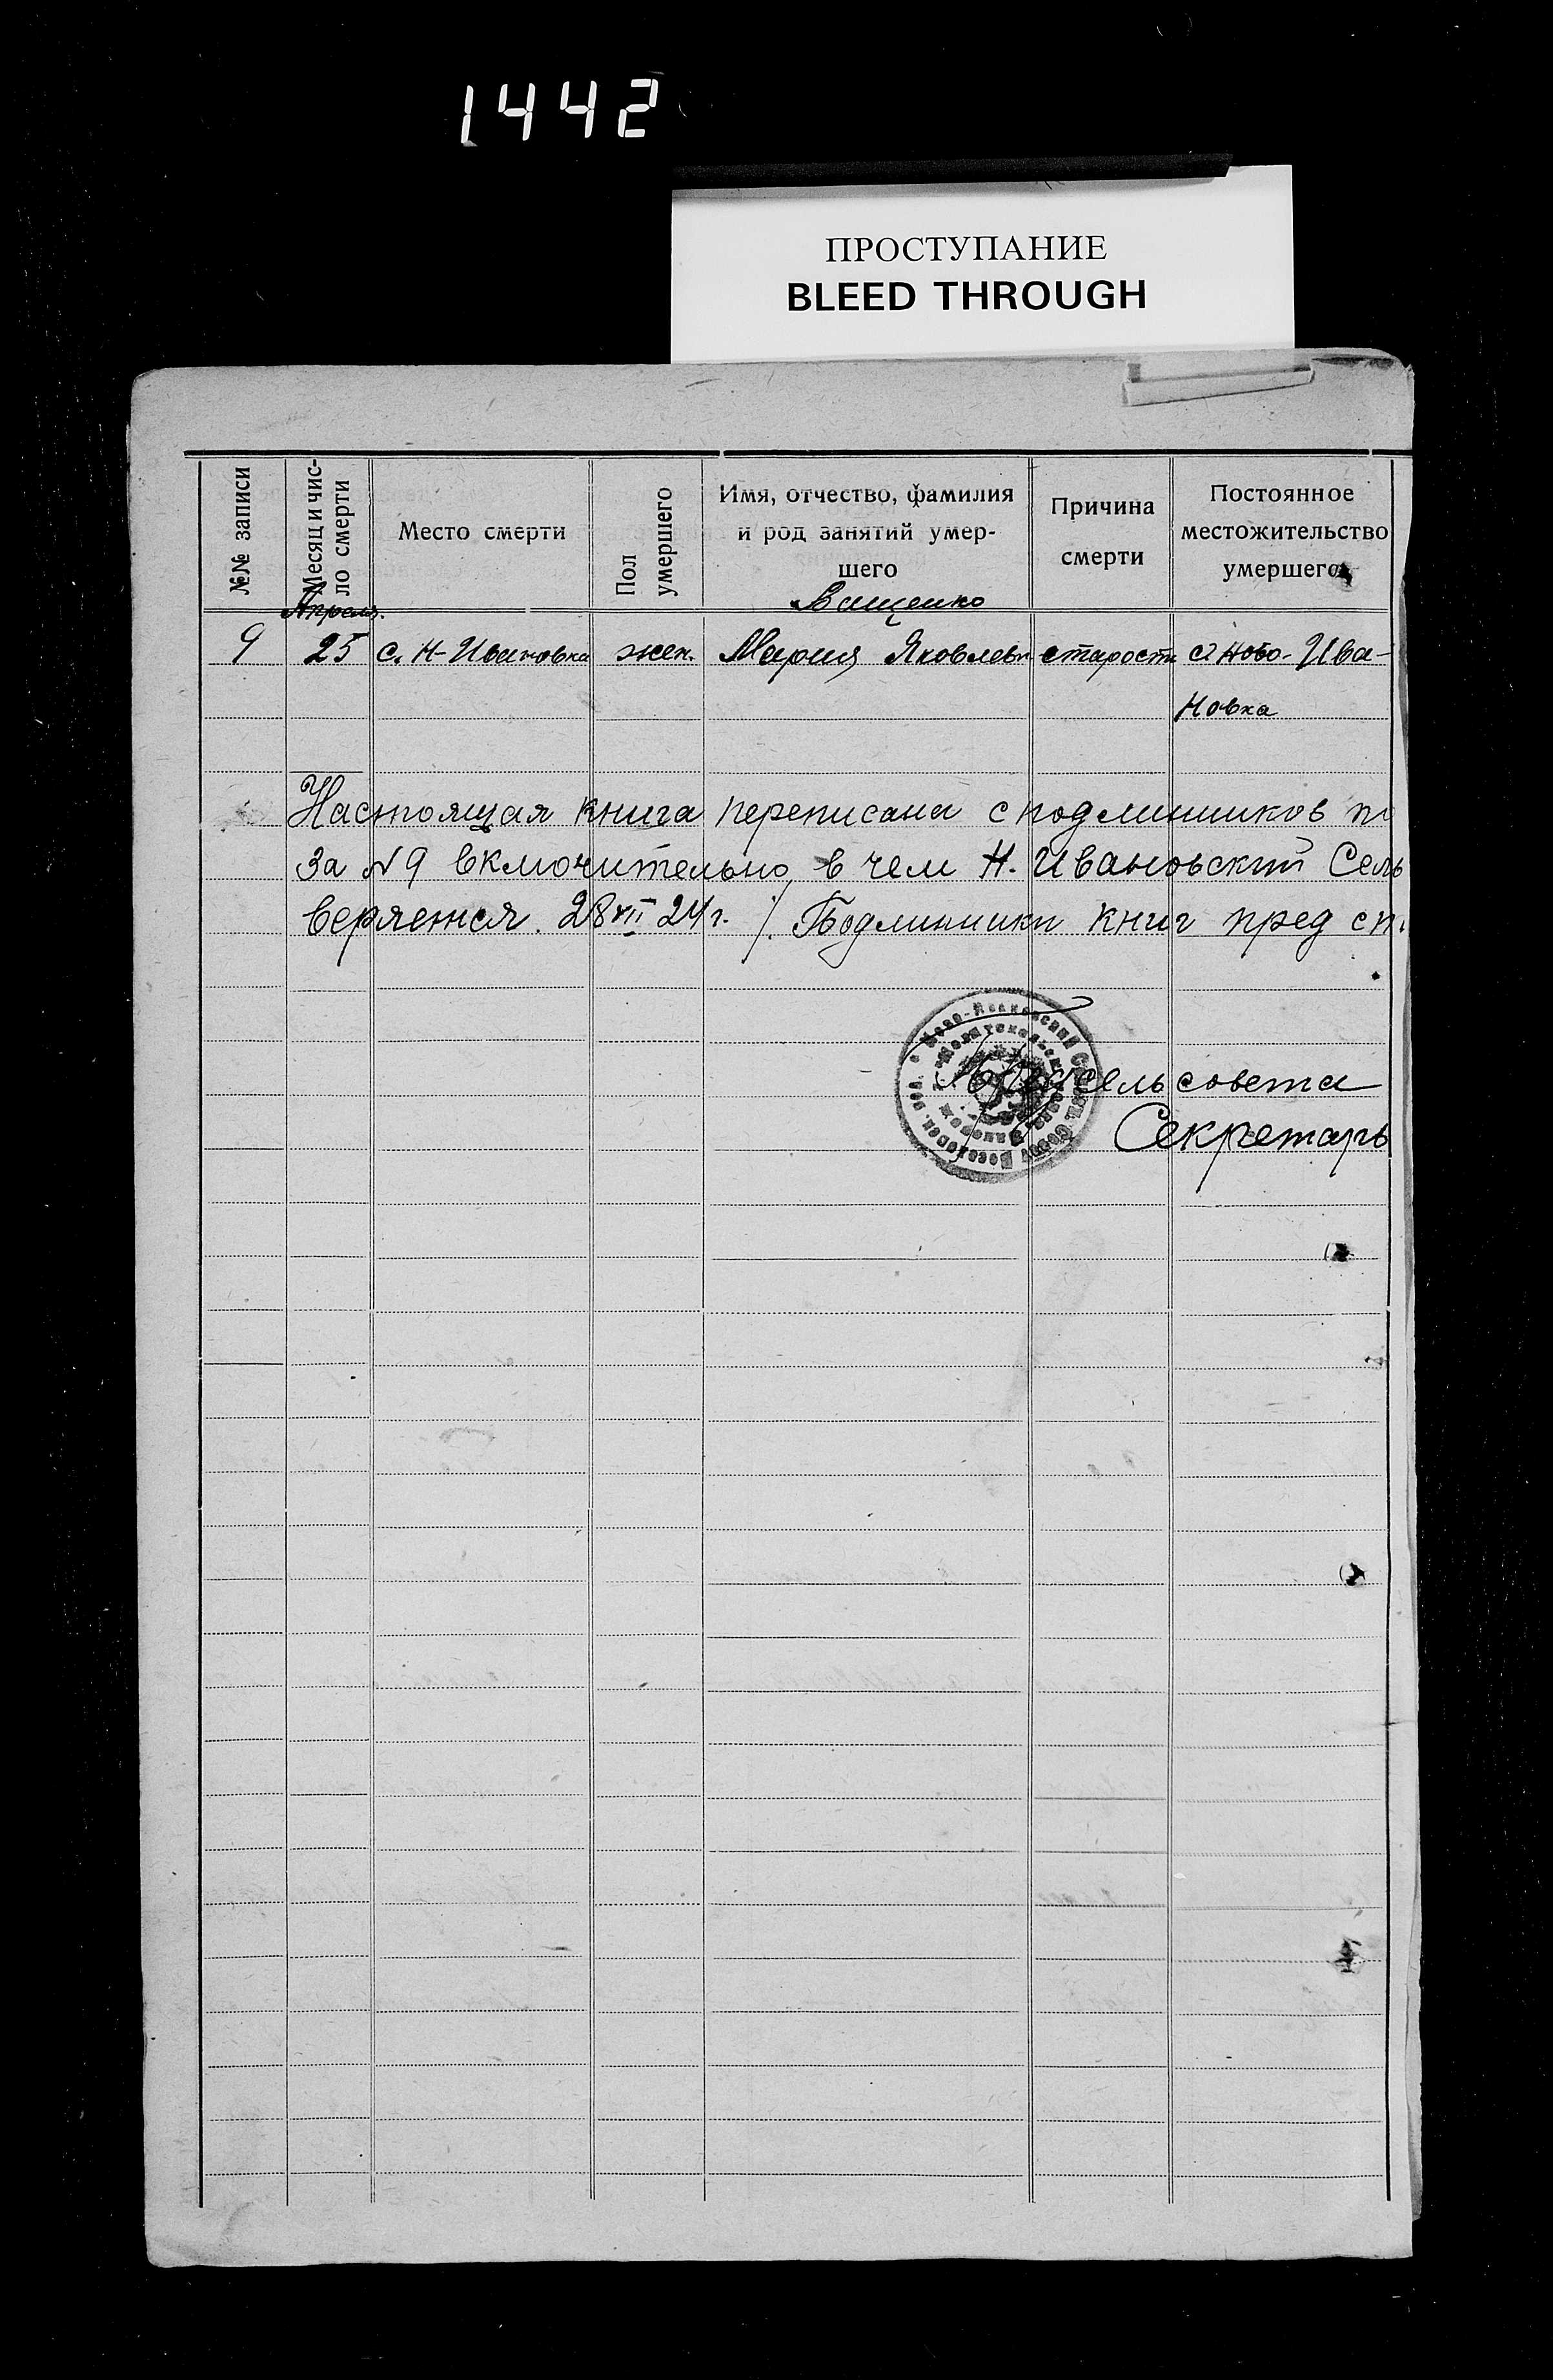 1442
ПРОСТУПАНИЕ
BLEED THROUGH
№№ записи
Месяц и чис-
ло смерти
Место смерти
Пол
умершего
Имя, отчество, фамилия
и род занятий умер-
шего
Причина
смерти
Постоянное
местожительство
умершего
Апреля. Ващенко
9 25 с. Н-Ивановка жен. Мария Яковлевн старости с. Ново-Ива-
новка
Настоящая книга переписана с подлинников по
за №9 включительно, в чем Н. Ивановский Сель
веряется. 28 VII 24 г. Подлинники книг пред сп.
сельсовета
Секретарь